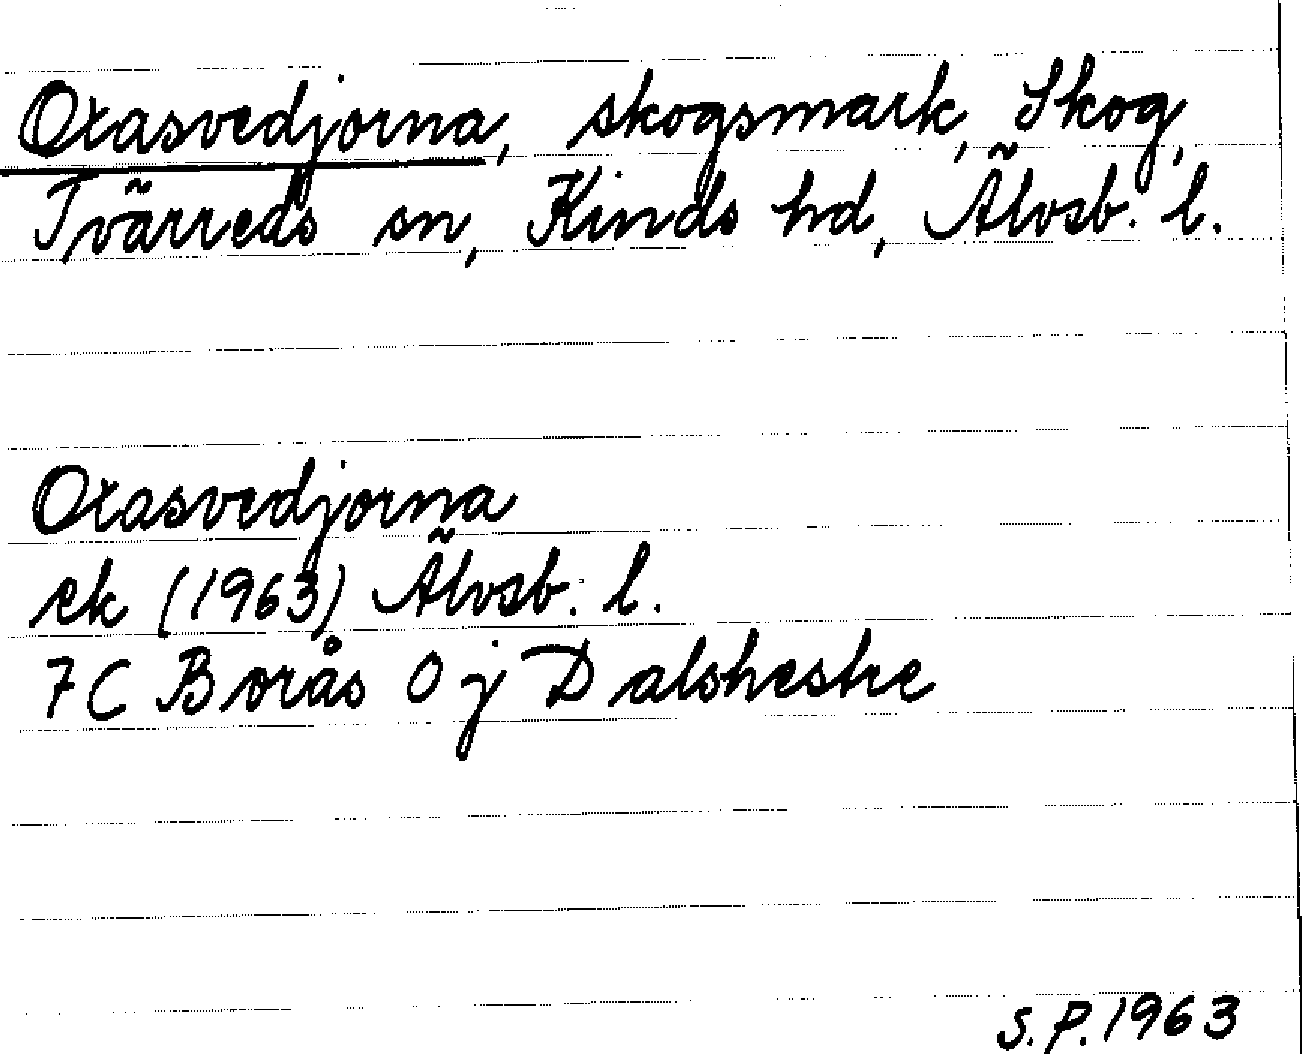 Oxasvedjorna, skogsmark, Skog,
Tvärreds sn, Kinds hd, Älvsb. l.
Oxasvedjorna
ek (1963) Älvsb. l.
7C Borås 0 j Dalshestre
S.P. 1963